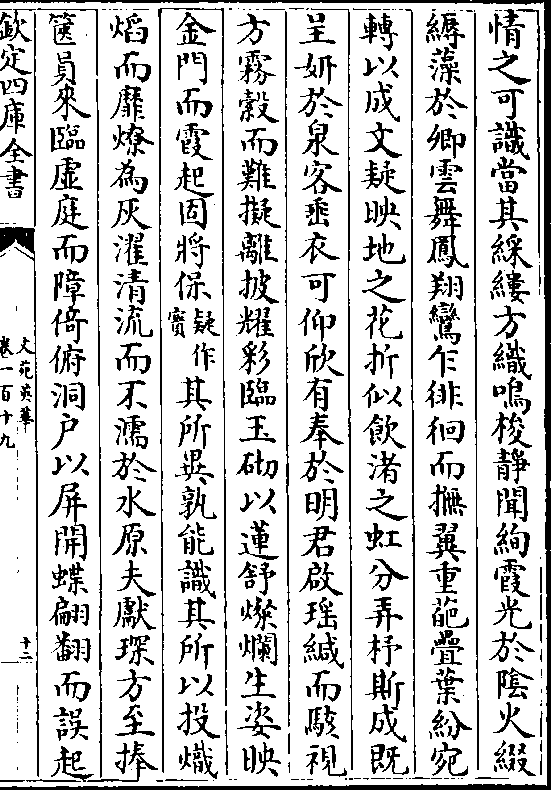 情之可識當其綵縷方織鳴梭靜聞絢霞光於陰火綴
縟藻於卿雲舞鳳翔鸞乍徘徊而撫翼重葩疊葉紛宛
轉以成文疑映地之花折似飲渚之虹分弄杼斯成既
呈妍於泉客垂衣可仰欣有奉於明君啟瑶緘而駭視
方霧縠而難擬離披耀彩臨玉砌以蓮舒燦爛生姿映
金門而霞起固將保疑作寳其所異孰能識其所以投熾
焰而靡燎為灰濯清流而不濡於水原夫獻琛方至捧
篋員來臨虛庭而障倚俯洞户以屏開蝶翩翻而誤起
欽定四庫全書
文苑英華
卷一百十九
十二